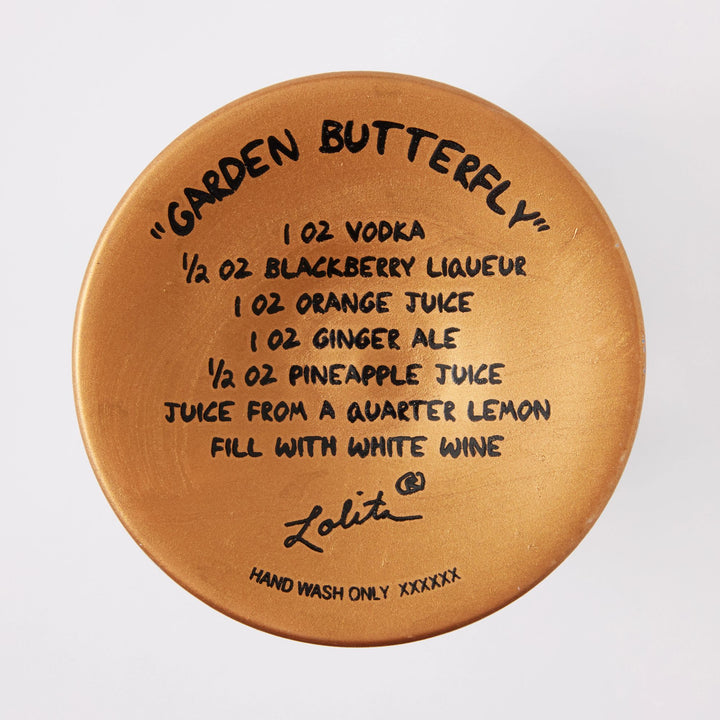 "GARDEN BUTTERFLY"
1 OZ VODKA
1/2 OZ BLACKBERRY LIQUEUR
1 OZ ORANGE JUICE
1 OZ GINGER ALE
1/2 OZ PINEAPPLE JUICE
JUICE FROM A QUARTER LEMON
FILL WITH WHITE WINE
Lolita®
HAND WASH ONLY XXXXXX